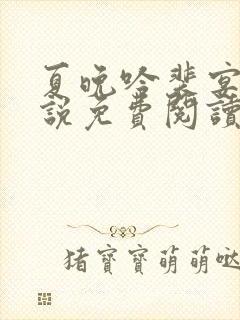 夏晚吟裴宴
說免費閱讀
猪寶寶萌萌哒